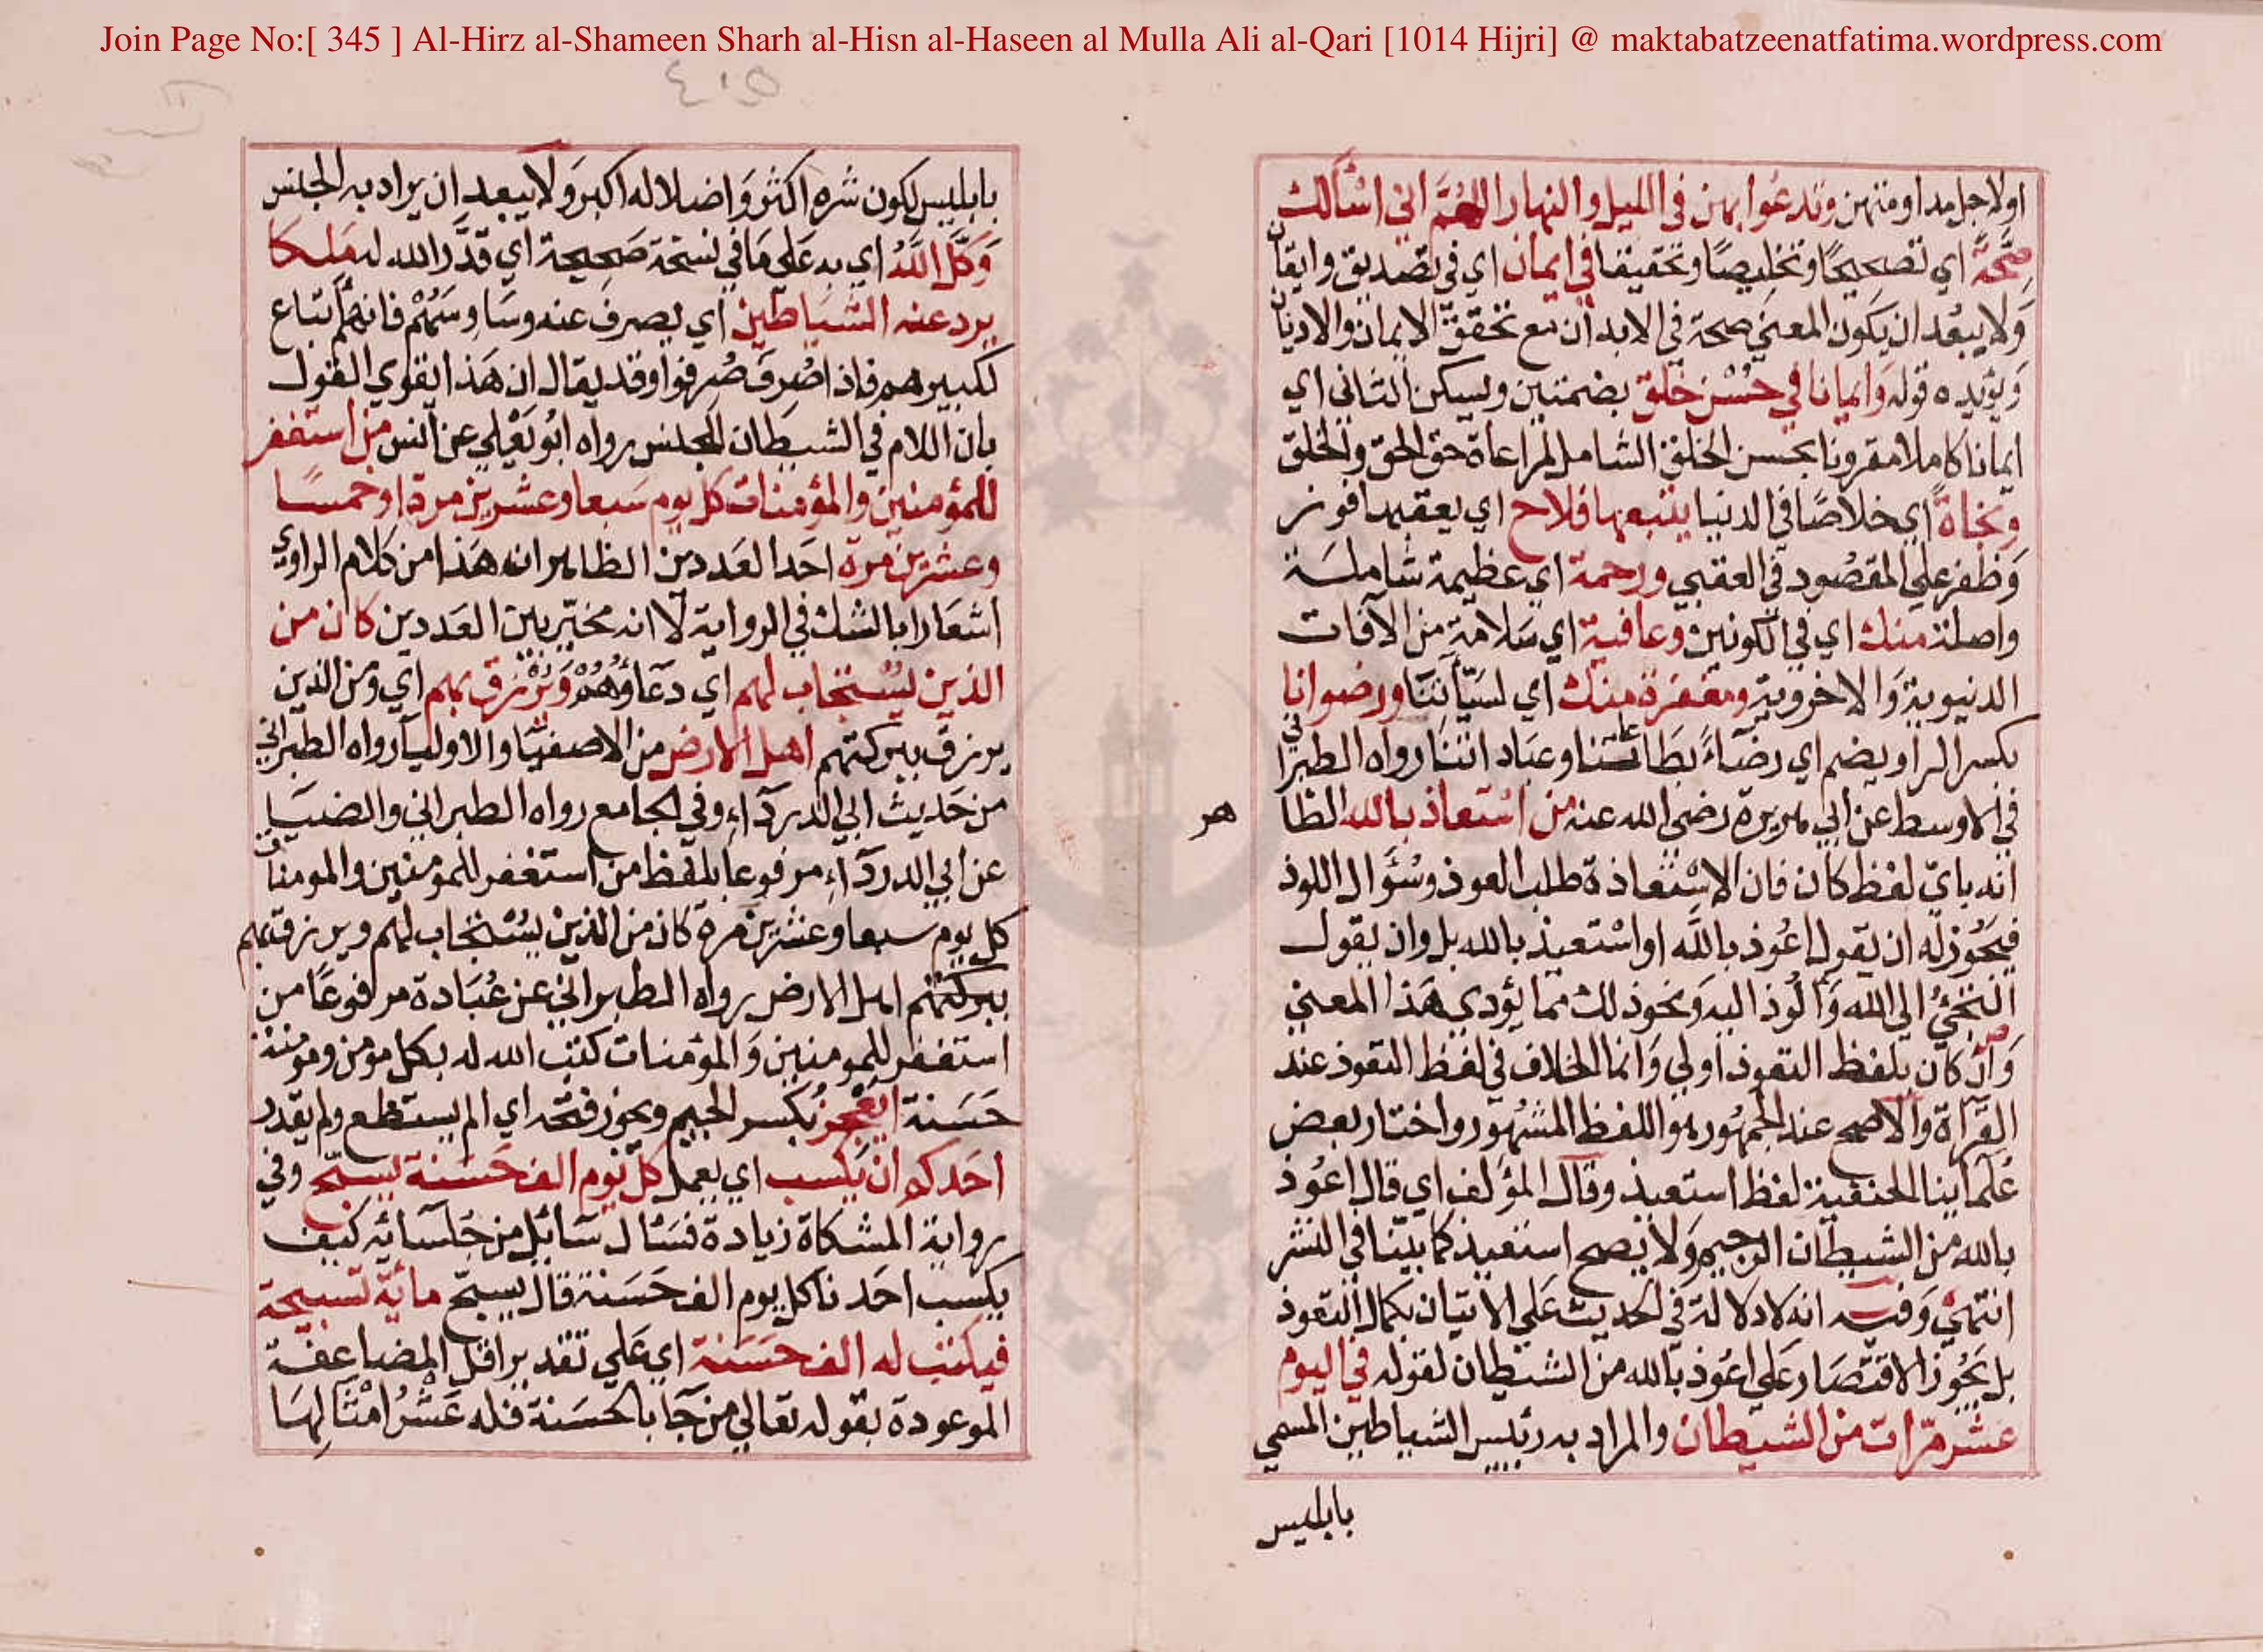 Join Page No:[ 345 ] Al-Hirz al-Shameen Sharh al-Hisn al-Haseen al Mulla Ali al-Qari [1014 Hijri] @ maktabatzeenatfatima.wordpress.com
اولاجل مداومتهن وتدعوا بهن في الليل والنهار اللهم اني اسألك
صحة اي تصحيحا وتخليصا وتحقيقا في ايمان اي في تصديق وايقان
ولا يبعد ان يكون المعنى صحة في الابدان مع تحقق الايمان والاديان
ويؤيده قوله وايمانا في حسن خلق بضمتين ويسكن الثاني اي
ايمانا كاملا مقرونا بحسن الخلق الشامل لمراعاة حق الحق والخلق
ونجاة اي خلاصا في الدنيا يتبعها فلاح اي يعقبها فوز
وظفر على المقصود في العقبي ورحمة اي عظيمة شاملة
واصلة منك اي في الكونين وعافية اي سلامة من الآفات
الدنيوية والاخروية ومغفرة منك اي لسيآتنا ورضوانا
بكسر الراويضم اي رضاء بطاعتنا وعباداتنا رواه الطبراني
في الاوسط عن ابي هريرة رضي الله عنه من استعاذ بالله الظا
هر
انه باي لفظ كان فان الاستعاذة طلب العوذ وسؤال اللوذ
فيجوز له ان يقول اعوذ بالله او استعيذ بالله بل وان يقول
التجئ الى الله وألوذ اليه ونحو ذلك مما يؤدي هذا المعنى
وان كان بلفظ التعوذ اولي وانما الخلاف في لفظ التعوذ عند
القراة والاصح عند الجمهور هو اللفظ المشهور واختار بعض
علمآينا الحنفية لفظ استعيذ وقال المؤلف اي قال اعوذ
بالله من الشيطان الرجيم ولا يصح استعيذ كما بينا في النشر
انتهي وفيه انه لا دلالة في الحديث على الاتيان بكمال التعوذ
بل يجوز الاقتصار على اعوذ بالله من الشيطان لقوله في اليوم
عشر مرات من الشيطان والمراد به رئيس الشياطين المسمي
بابليس
بابليس لكون شره اكثر واضلاله اكبر ولا يبعد ان يراد به الجنس
وكل الله اي به على ما في نسخة صحيحة اي قدر الله له ملكا
يرد عنه الشياطين اي يصرف عنه وساوسهم فانهم اتباع
لكبيرهم فاذا صرف صرفوا وقد يقال ان هذا يقوي القول
بان اللام في الشيطان للجنس رواه ابو يعلي عن انس من استغفر
للمؤمنين والمؤمنات كل يوم سبعا وعشرين مرة او خمسا
وعشرين مرة احد العددين الظاهر انه هذا من كلام الراوي
اشعارا بالشك في الرواية لا انه مخير بين العددين كان من
الذين يستجاب لهم اي دعاؤهم ويرزق بهم اي ومن الذين
يرزق ببركتهم اهل الارض من الاصفيا والاوليآ رواه الطبراني
من حديث ابي الدردآء وفي الجامع رواه الطبراني والضيا
عن ابي الدردآء مرفوعا بلفظ من استغفر للمومنين والمومنات
كل يوم سبعا وعشرين مرة كان من الذين يستجاب لهم ويرزق بهم
ببركتهم اهل الارض رواه الطبراني عن عبادة مرفوعا من
استغفر للمومنين والمؤمنات كتب الله له بكل مومن ومومنة
حسنة ايعجز بكسر الجيم ويجوز فتحه اي الم يستطع ولم يقدر
احدكم ان يكسب اي يعمل كل يوم الف حسنة يسبح وفي
رواية المشكاة زيادة فسئال سائل من جلسائه كيف
يكسب احدنا كل يوم الف حسنة قال يسبح مائة تسبيحة
فيكتب له الف حسنة اي على تقدير اقل المضاعفة
الموعودة بقوله تعالي من جآ بالحسنة فله عشر امثالها